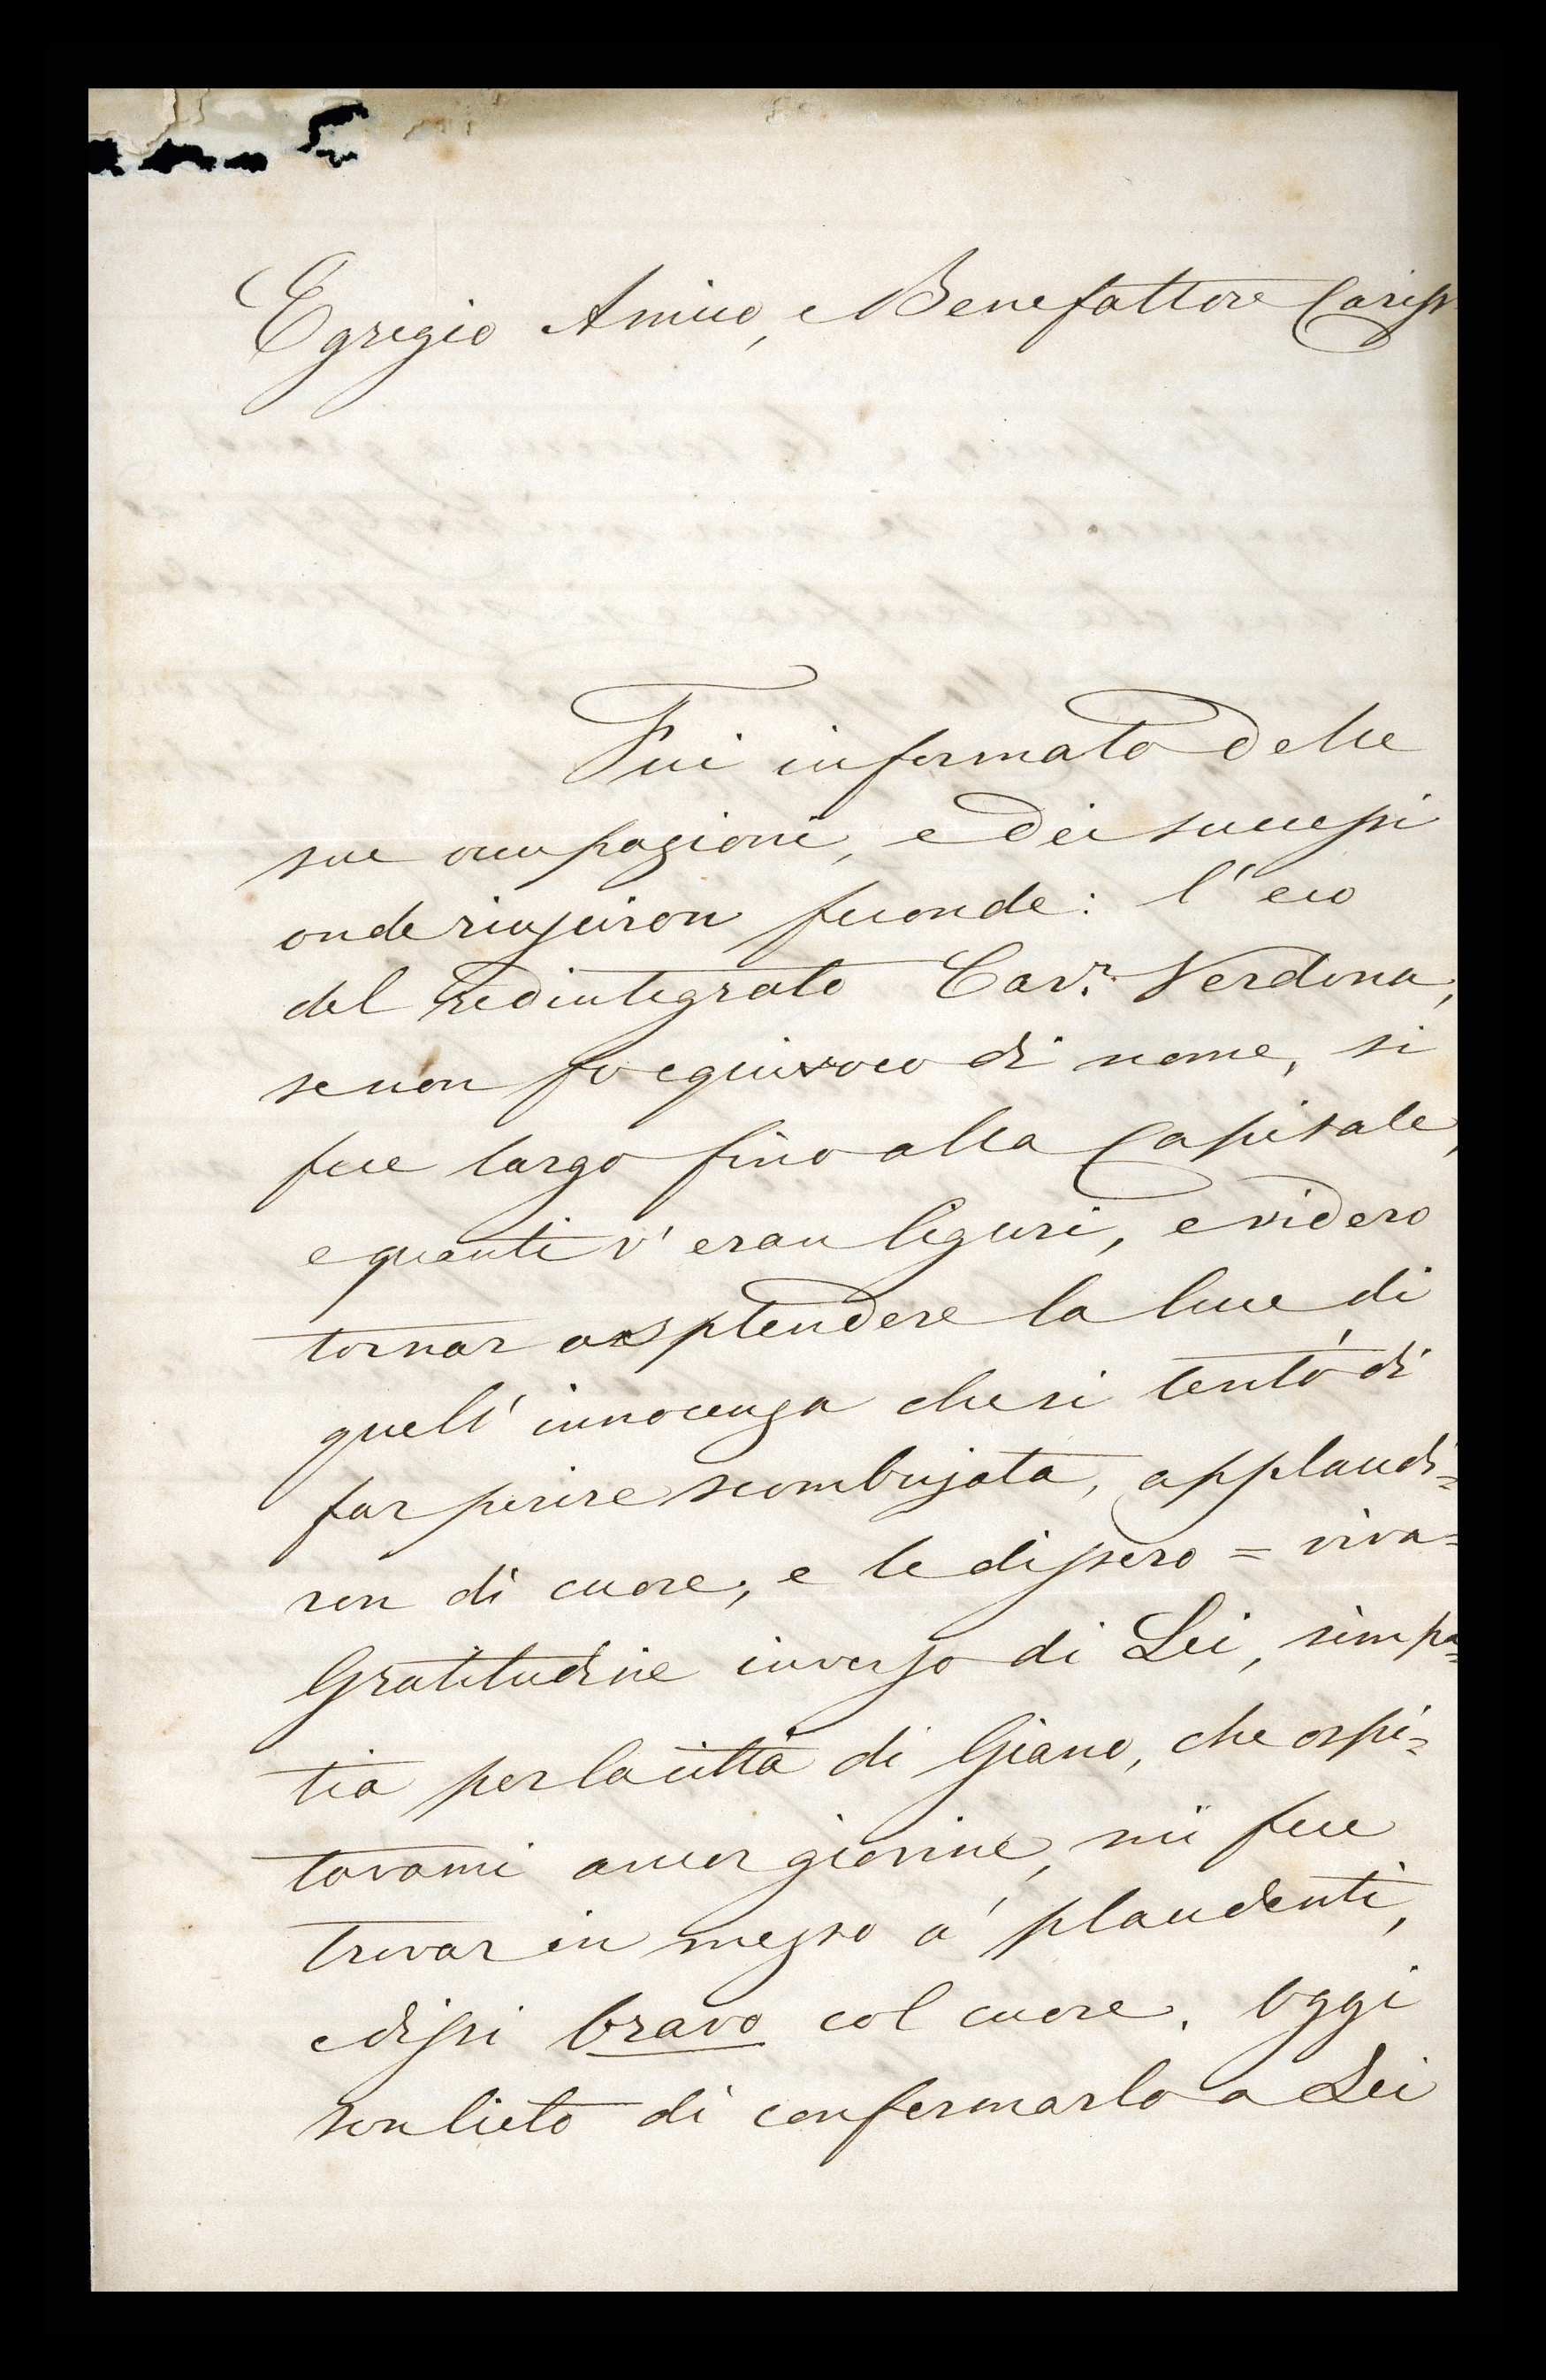 Egregio Amico, e Benefattore Cariss
Fui informato delle
sue occupazioni, e dei successi
onde riusciron feconde: l'eco
del redintegrato Cav.r Verdona,
se non fo equivoco di nome, si
fece largo fino alla Capitale,
e quanti v'eran liguri, e videro
tornar a splendere la luce di
quell'innocenza che si tentò di
far perire scombujata, applaudi=
ron di cuore, e le dissero = viva=
Gratitudine inverso di Lei, simpa=
tia per la città di Giano, che ospi=
tavami ancor giovine, mi fece
trovar in mezzo a' plaudenti,
e dissi bravo col cuore. Oggi
son lieto di confermarlo a Lei